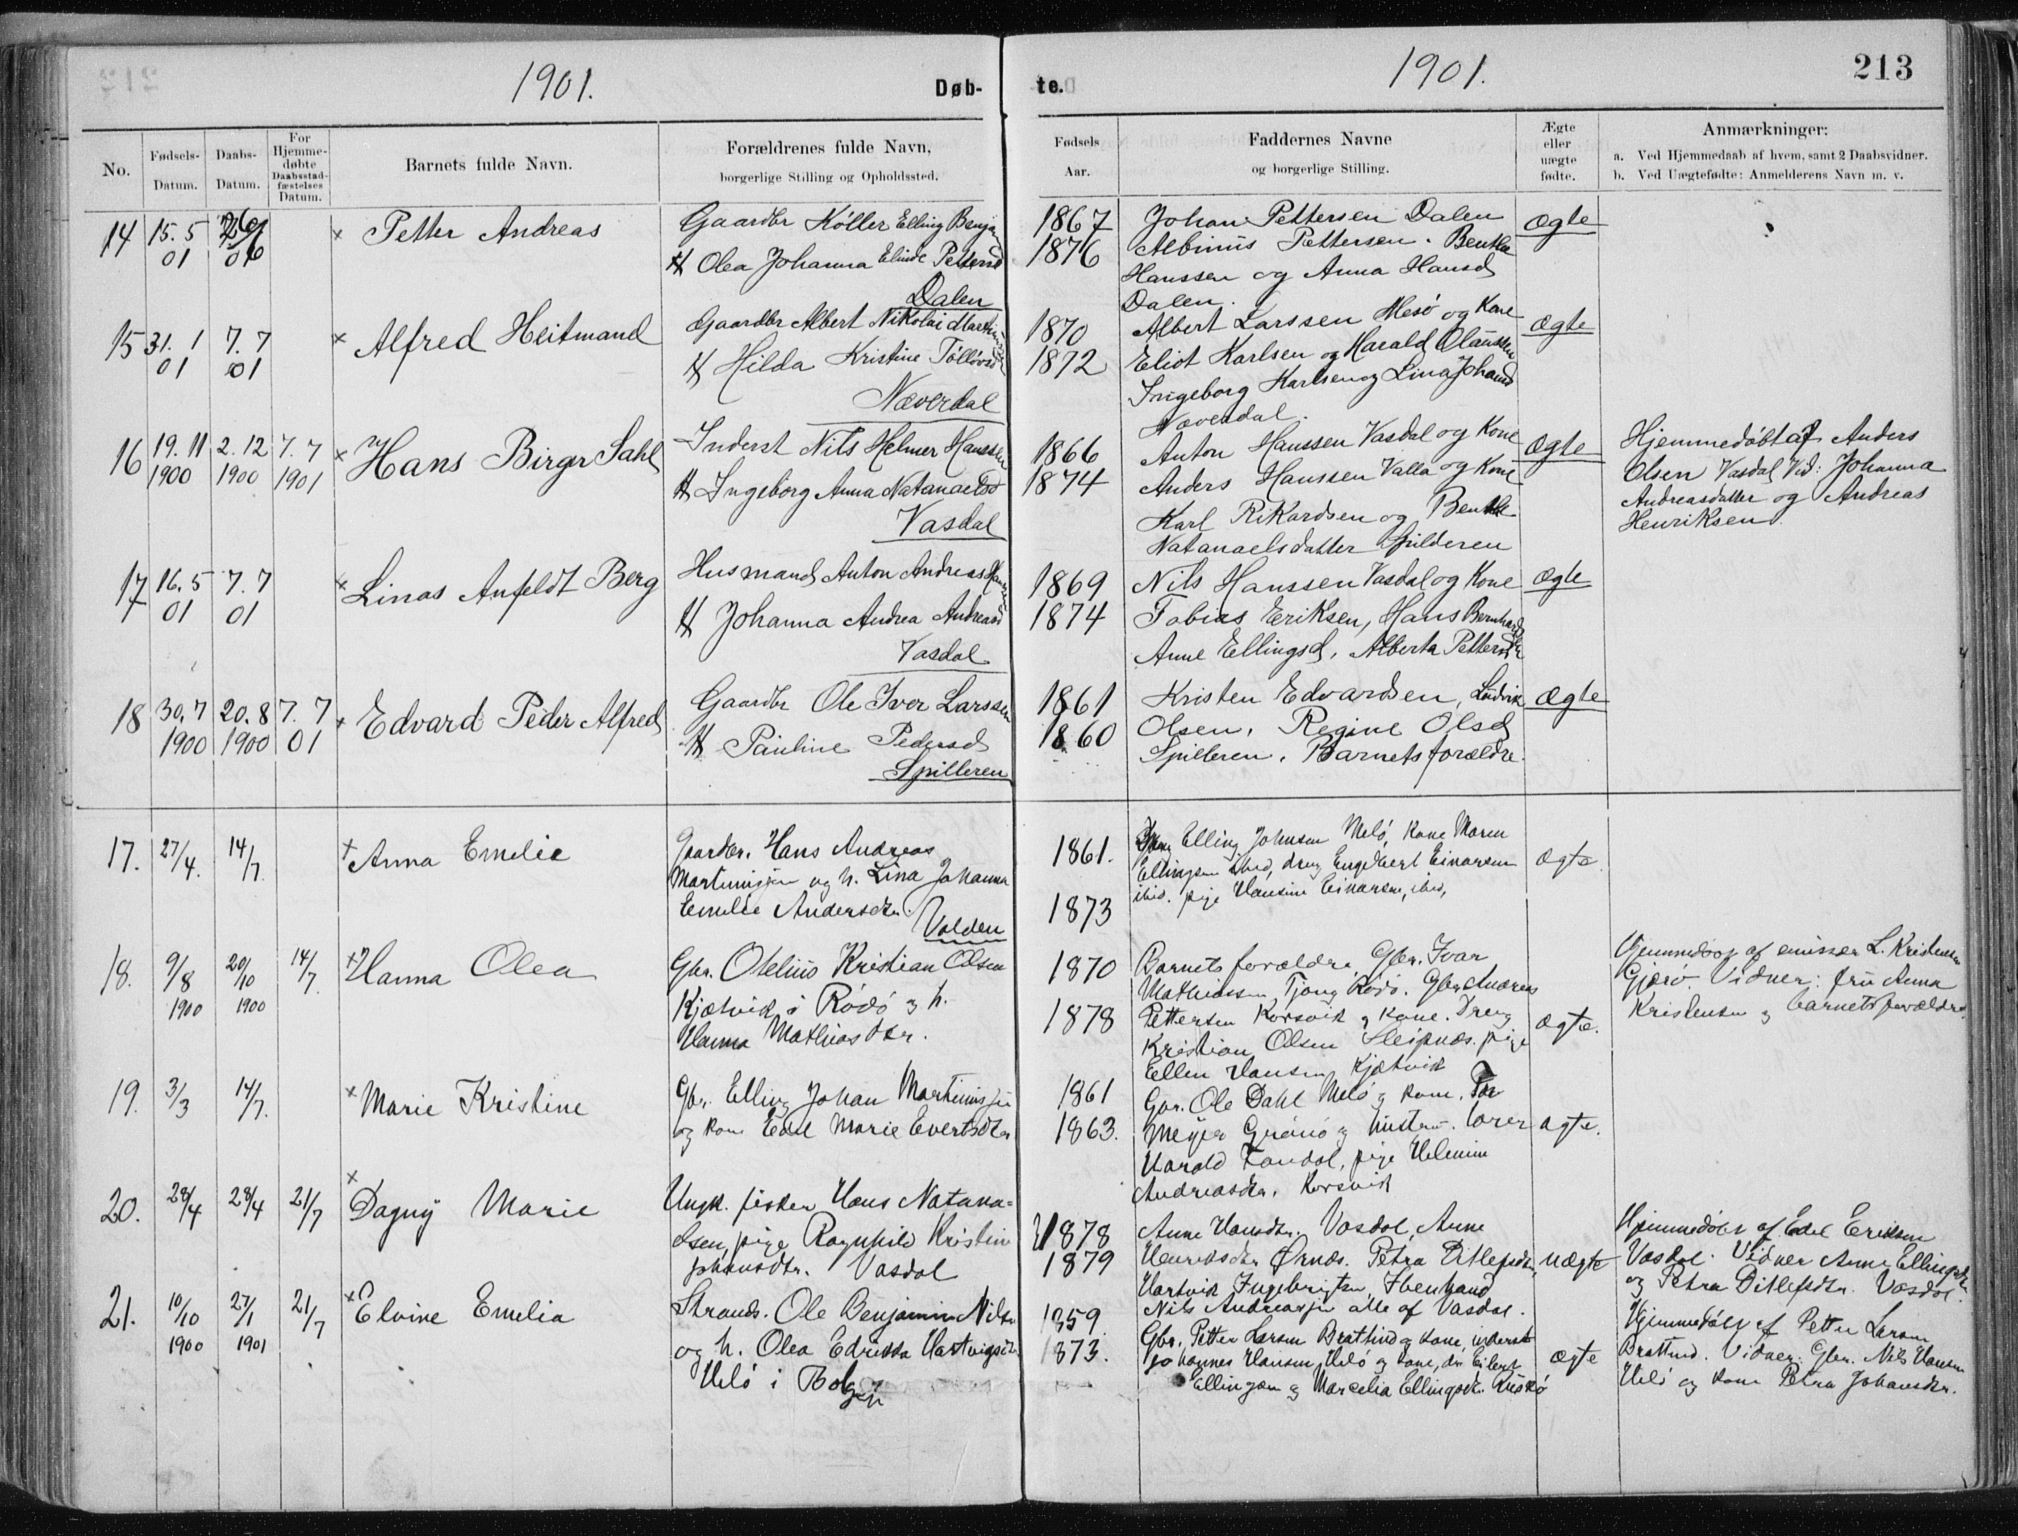 1901.
Døb-
No.
Fødsels-
Datum.
Daabs-
Datum.
For
Hjemme-
døbte
Daabsstad-
fæstelses
Datum.
Barnets fulde Navn.
Forældrenes fulde Navn,
borgerlige Stilling og Opholdssted.
14 15.5 26/6 × Petter Andreas Gaardbr Köller Elling Benja
01 01 H Olea Johanna Elinde Petersd
Dalen
15 31.1 7.7 × Alfred Heitmand Gaardbr Albert Nikolai
01 01 H Hilda Kristine
Næverdal
16 19.11 2.12 7.7 × Hans Birger Sahl Inderst Nils Helmer Hanssen
1900 1900 1901 H Ingeborg Anna Natanaelsd
Vasdal
17 16.5 7.7 × Linas Anfeldt Berg Husmand Anton Andreas
01 01 H Johanna Andrea Andreasd
Vasdal
18 30.7 20.8 7.7 × Edvard Peder Alfred Gaardbr Ole Iver Larssen
1900 1900 01 H Pauline Pedersd
Spilleren
17. 27/4. 14/7. × Anna Emelie Gaardbr. Hans Andreas
og h. Lina Johanna
Emelie
Volden
18. 9/8 20/10 14/7. × Hanna Olea Gbr. Otelius Kristian Olsen
1900 1900 Kjætvik i Rødø og h.
Hanna Mathiasdtr.
19. 3/3 14/7. × Marie Kristine Gbr. Elling Johan
og kone Edel Marie Evertsdtr
20. 28/4 28/4 21/7 × Dagny Marie Ungk. fisker Hans Natana=
elsen, pige Ragnhild Kristin
Johansdtr. Vasdal
21. 10/10 27/1 21/7 × Elvine Emelia Strands. Ole Benjamin Nilsen
1900 1901 og h. Olea Hartvigsdtr
Melö i Bolga
te.
1901.
213
Fødsels
Aar.
Faddernes Navne
og borgerlige Stilling.
Ægte
eller
uægte
fødte.
Anmærkninger:
a. Ved Hjemmedaab af hvem, samt 2 Daabsvidner.
b. Ved Uægtefødte: Anmelderens Navn m. v.
1867 Johan Pettersen Dalen Ægte
1876 Albinus Pettersen.
Hanssen og Anna Hansd
Dalen.
1870 Albert Larssen Mesö og Kone Ægte
1872 Eliot Karlsen og Harald Olaussen
Ingeborg Karlsen og Lina Johansd
Næverdal.
1866 Anton Hanssen Vasdal og Kone Ægte Hjemmedøbt af Anders
1874 Anders Hanssen Valla og Kone Olsen Vasdal Vid: Johanna
Karl Rikardsen og Andreasdatter og Andreas
Natanaelsdatter Spilderen Henriksen
1869 Nils Hanssen Vasdal og Kone Ægte
1874 Tobias Eriksen, Hans
Anne Ellingsd, Alberta
1861 Kristen Edvardsen, Ludvik Ægte
1860 Olsen, Regine Olsd
Spilleren. Barnets forældre.
1861. Elling Johnsen Melö, kone Maren
Ellingsen ibid, dreng Engelbert Einarsen Ægte
1873 ibid. pige Hansine Einarsen, ibid,
1870 Barnets forældre, Gbr. Ivar Hjemmedöbt af emissær L. Kristensen
Mathiassen Tjong Rödö. Gbr Andreas Gjærö. Vidner: fru Anna
1878 Pettersen Korsvik og kone. Dreng Ægte. Kristensen og barnets forældre.
Kristian Olsen Sleipnæs. pige
Ellen Hansen, Kjætvik
1861 Gbr. Ole Dahl Melö og kone.
1863. Meyer Grönö og hustru. lærer ægte.
Harald pige
Andreasdtr. Korsvik
1878 Anne Hansdtr. Vasdal, Anne Hjemmedöbt af Edel Eriksen
1879 Ørnæs. Petra Ditlefsdtr, uægte Vasdal. Vidner Anne
Hartvik Ingebrigtsen, og Petra Ditlefsdtr. Vasdal.
1859 Nils Andreassen alle af Vasdal.
Gbr. Petter Larsen og kone, inderst Hjemmedöbt af Petter Larsen
1873. Johannes Hansen Melö og kone, ægte Vidner. Gbr. Nils Hansen
Ellingsen og Marcelia Ellingsdtr. Melö og kone Petra Johansdtr.